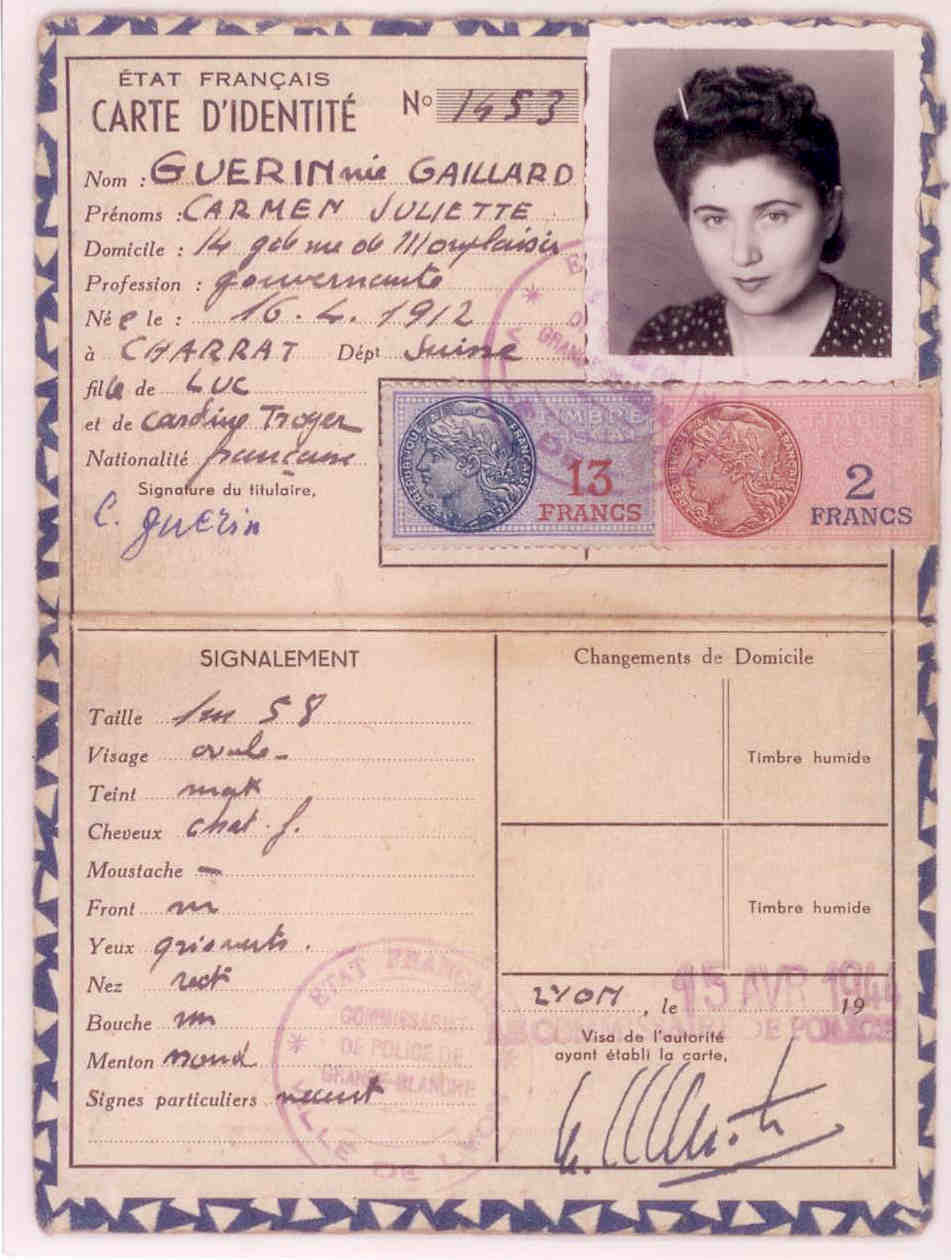 ÉTAT FRANÇAIS
CARTE D'IDENTITÉ Nº 1453
Nom : GUERIN née GAILLARD
Prénoms : CARMEN JULIETTE
Domicile : 14 rue de Monplaisir
Profession : gouvernante
Née le : 16.4.1912
à CHARRAT Dépt Suisse
fille de LUC
et de Troger
Nationalité française
Signature du titulaire,
C. Guerin
TIMBRE
RÉPUBLIQUE FRANÇAISE
13
FRANCS
2
FRANCS
SIGNALEMENT
Taille 1m 58
Visage ovale
Teint mat
Cheveux chat. f.
Moustache —
Front m
Yeux gris verts.
Nez rect
Bouche m
Menton rond
Signes particuliers néant
ÉTAT FRANÇAIS
COMMISSARIAT
DE POLICE DE
GRANGE-BLANCHE
VILLE DE LYON
Changements de Domicile
Timbre humide
Timbre humide
LYON, le 15 AVR 1944 19
DE POLICE
Visa de l'autorité
ayant établi la carte,